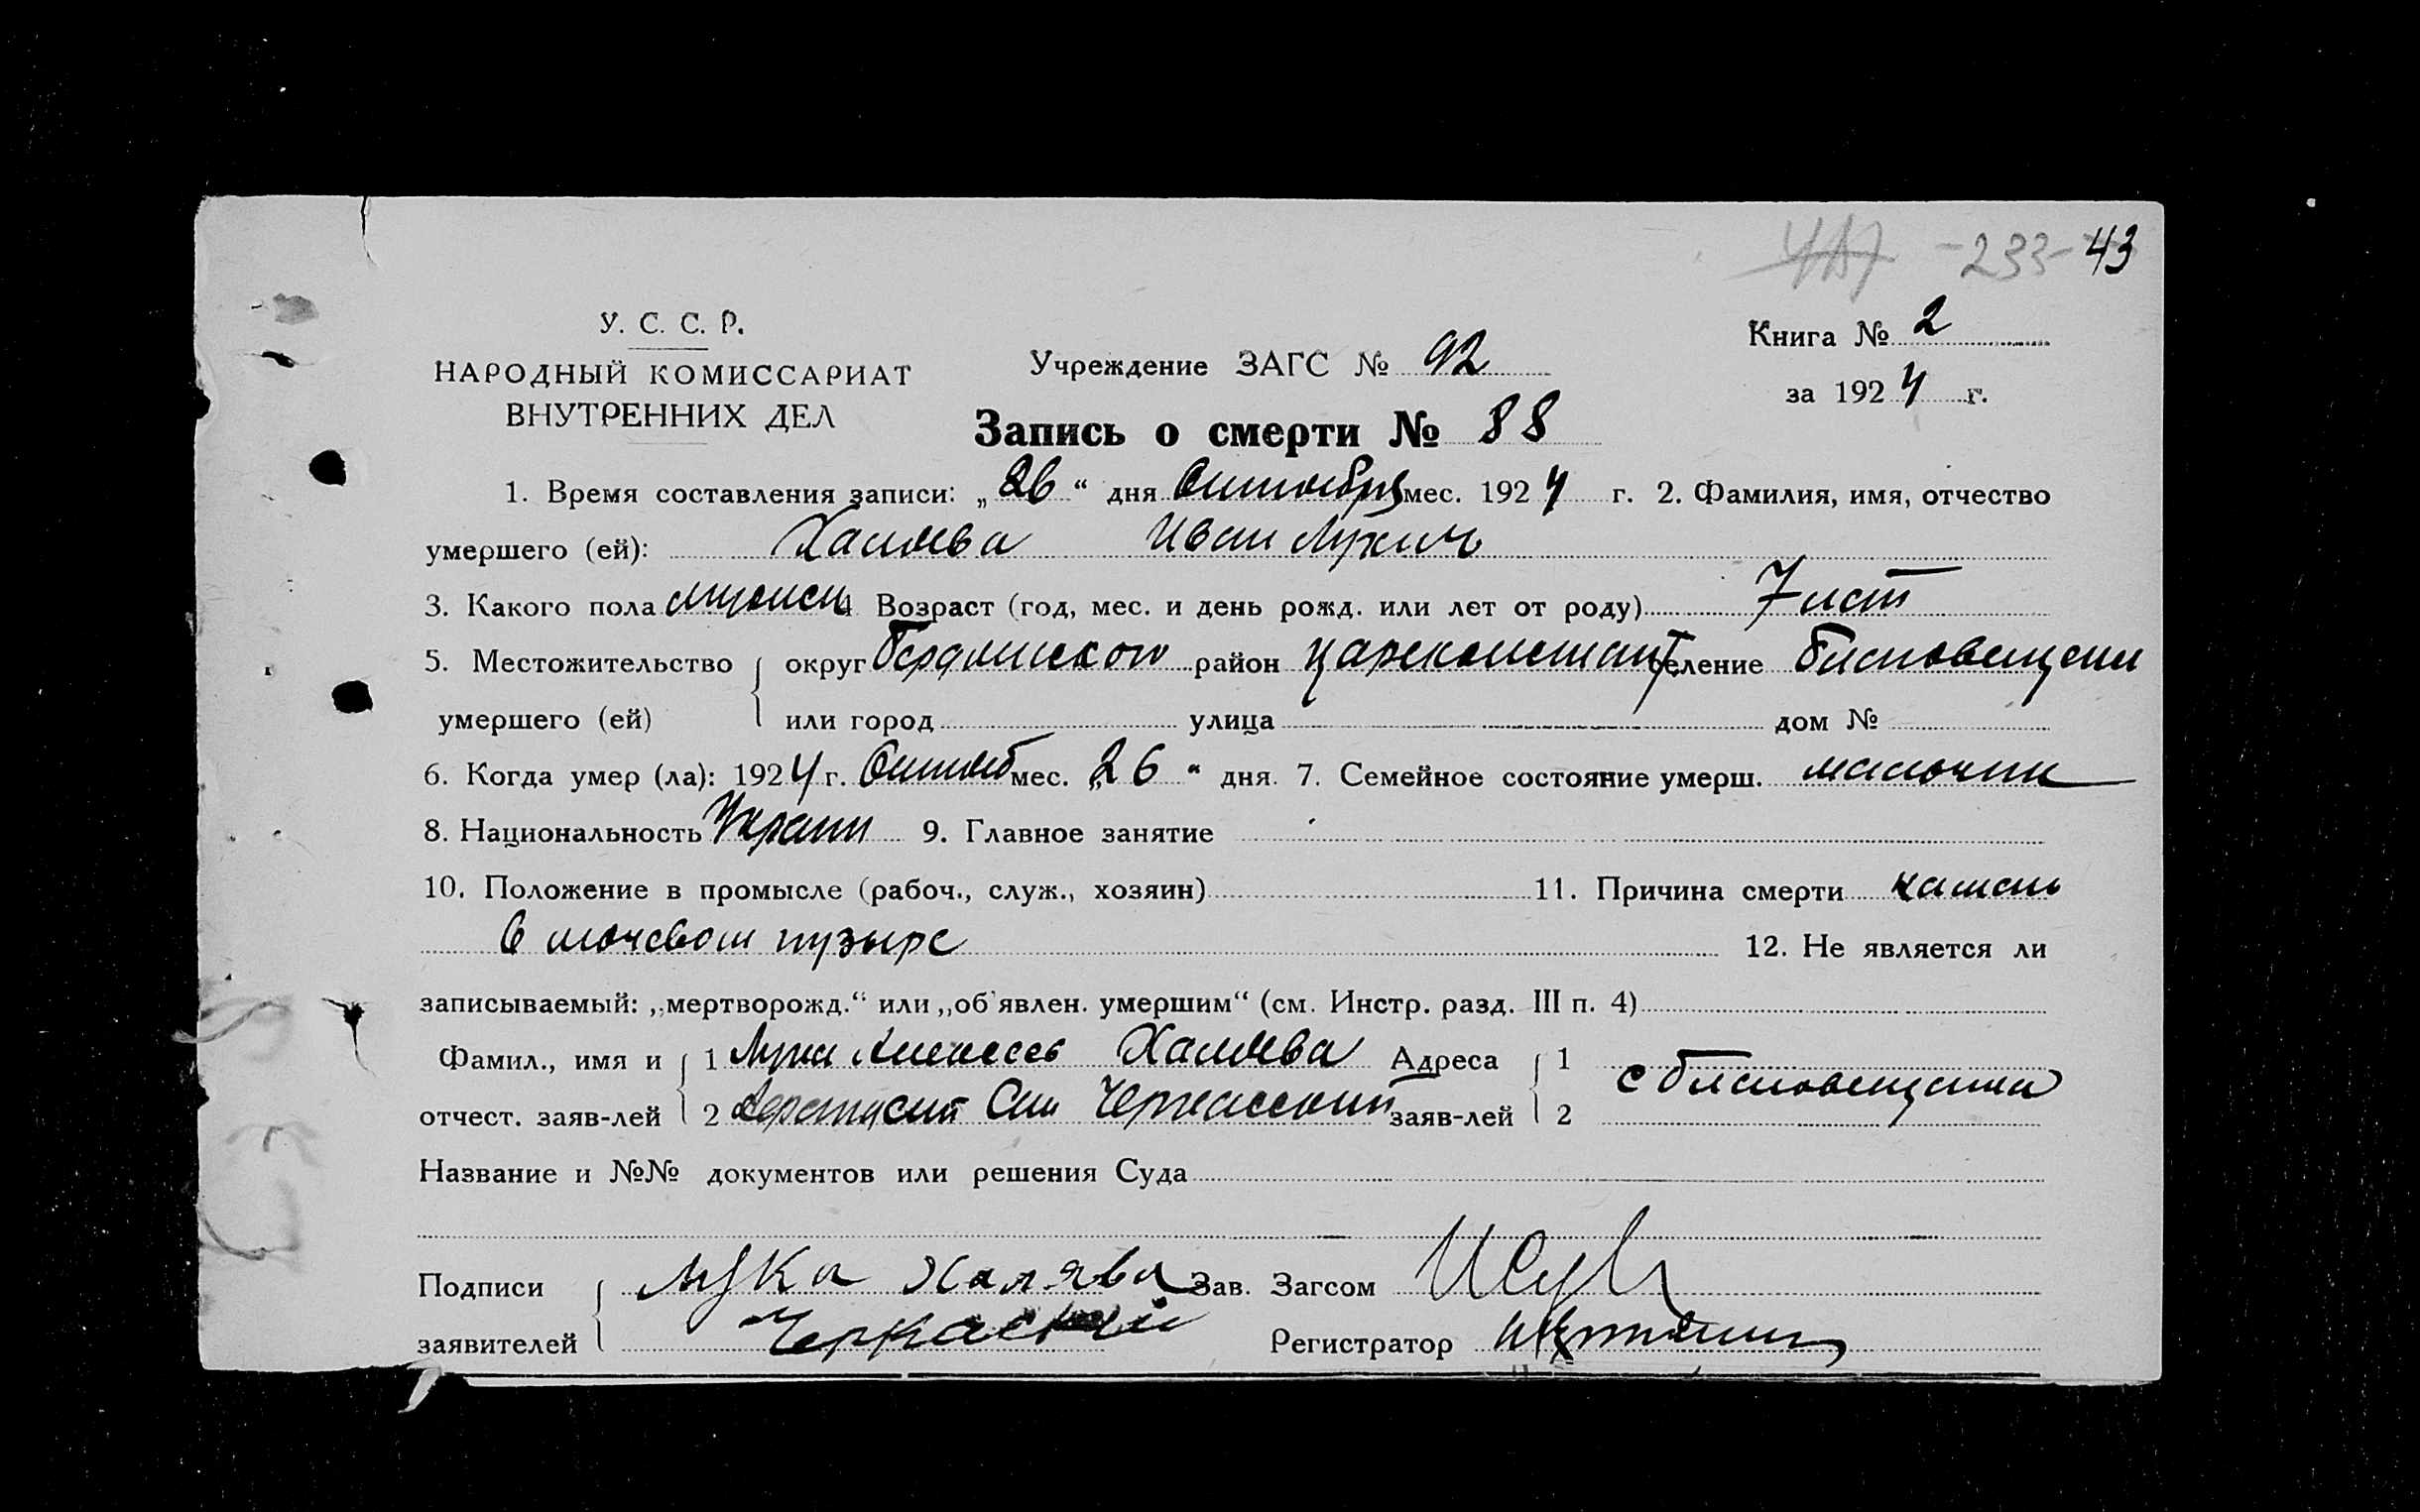 -233- 43
У. С. С. Р.
НАРОДНЫЙ КОМИССАРИАТ
ВНУТРЕННИХ ДЕЛ
Учреждение ЗАГС № 92
Книга № 2
за 1924 г.
Запись о смерти № 88
1. Время составления записи: „26“ дня Октября мес. 1924 г. 2. Фамилия, имя, отчество
умершего (ей): Халява Иван Лукич
3. Какого пола мужск 4 Возраст (год, мес. и день рожд. или лет от роду) 7 лет
5. Местожительство округ Бердянского район Цареконстант селение Благовещенк
умершего (ей) или город улица дом №
6. Когда умер (ла): 1924 г. Октяб мес. „26“ дня. 7. Семейное состояние умерш. мальчик
8. Национальность Украин 9. Главное занятие
10. Положение в промысле (рабоч., служ., хозяин) 11. Причина смерти камень
в мочевом пузыре 12. Не является ли
записываемый: „мертворожд.“ или „об'явлен. умершим“ (см. Инстр. разд. III п. 4)
Фамил., имя и 1 Лука Алексеев Халява Адреса 1
отчест. заяв-лей 2 Сем Черкасский заяв-лей 2 с Благовещенка
Название и №№ документов или решения Суда
Подписи Лука Халява Зав. Загсом
заявителей Черкаский Регистратор